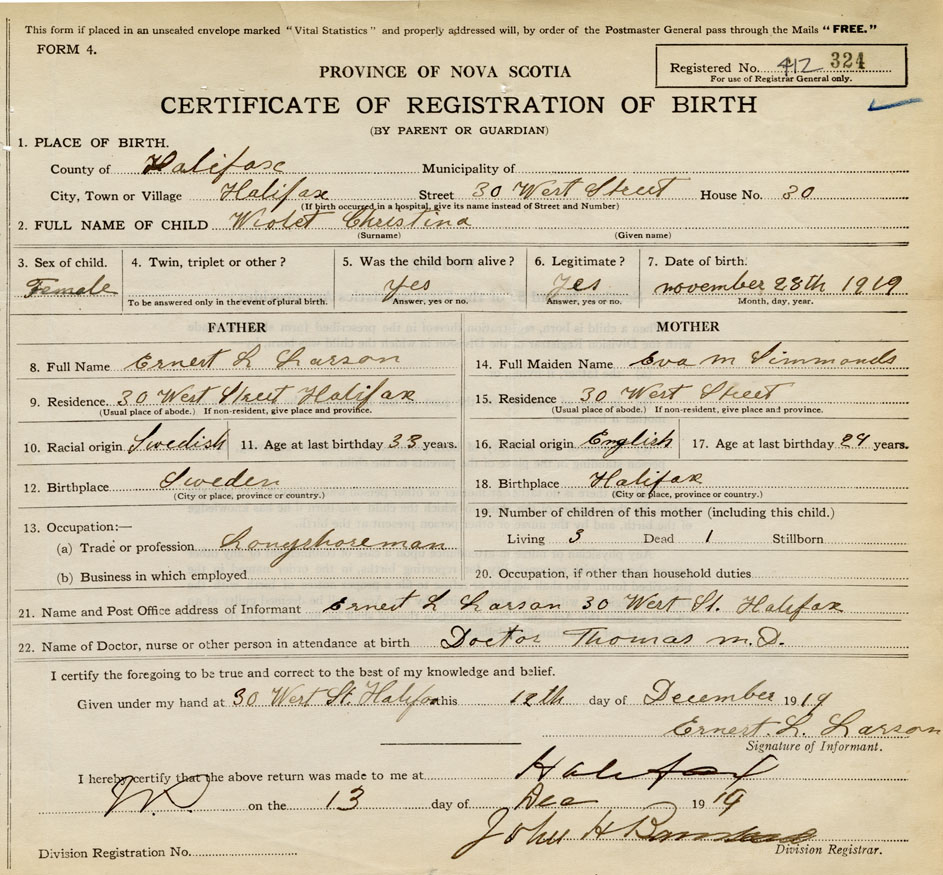 This form if placed in an unsealed envelope marked "Vital Statistics" and properly addressed will, by order of the Postmaster General pass through the Mails "FREE."
FORM 4.
Registered No. 412 324
For use of Registrar General only.
PROVINCE OF NOVA SCOTIA
CERTIFICATE OF REGISTRATION OF BIRTH
(BY PARENT OR GUARDIAN)
1. PLACE OF BIRTH.
County of Halifax Municipality of
City, Town or Village Halifax Street 30 West Street House No. 30
(If birth occurred in a hospital, give its name instead of Street and Number)
2. FULL NAME OF CHILD Violet Christina
(Surname) (Given name)
3. Sex of child. 4. Twin, triplet or other? 5. Was the child born alive? 6. Legitimate? 7. Date of birth.
Female Yes Yes november 28th 1919
To be answered only in the event of plural birth. Answer, yes or no. Answer, yes or no. Month, day, year.
FATHER MOTHER
8. Full Name Ernest L Larson 14. Full Maiden Name Eva M Simmonds
9. Residence. 30 West Street Halifax 15. Residence 30 West Street
(Usual place of abode.) If non-resident, give place and province. (Usual place of abode.) If non-resident, give place and province.
10. Racial origin Swedish 11. Age at last birthday 33 years. 16. Racial origin English 17. Age at last birthday 29 years.
12. Birthplace Sweden 18. Birthplace Halifax
(City or place, province or country.) (City or place, province or country.)
13. Occupation:— 19. Number of children of this mother (including this child.)
(a) Trade or profession Longshoreman Living 3 Dead 1 Stillborn
(b) Business in which employed 20. Occupation, if other than household duties
21. Name and Post Office address of Informant Ernest L Larson 30 West St. Halifax
22. Name of Doctor, nurse or other person in attendance at birth Doctor Thomas M.D.
I certify the foregoing to be true and correct to the best of my knowledge and belief.
Given under my hand at 30 West St. Halifax this 12th day of December 1919
Ernest. L. Larson
Signature of Informant.
I hereby certify that the above return was made to me at Halifax
on the 13 day of Dec 1919
John H
Division Registration No. Division Registrar.